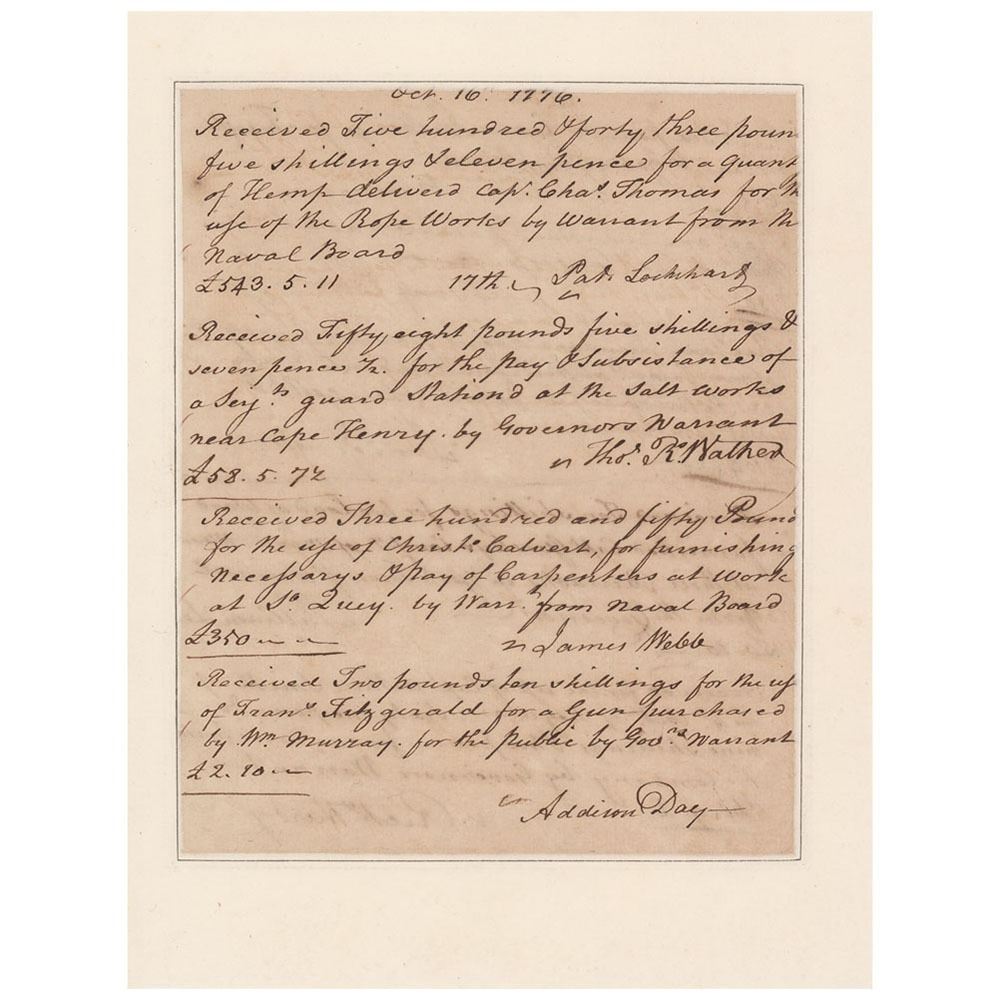 Oct. 16. 1776.
Received Five hundred & forty three poun
five shillings & eleven pence for a quant
of Hemp deliverd Capt. Chas. Thomas for th
use of the Rope Works by Warrant from th
Naval Board
£543.5.11 17th. Pat. Lockhart
Received Fifty eight pounds five shillings &
seven pence ½. for the pay & subsistance of
a Serjts guard Stationd at the Salt Works
near Cape Henry. by Governors Warrant
Thos. Rs. Walker
£58.5.7½
Received Three hundred and fifty Pound
for the use of Christo. Calvert, for furnishing
necessarys & pay of Carpenters at work
at So. Quey. by Warrt. from Naval Board
£350
James Webb
Received Two pounds ten shillings for the us
of Frans. Fitzgerald for a Gun purchased
by Wm. Murray. for the public by Govrs. Warrant
£2.10
Addison Day